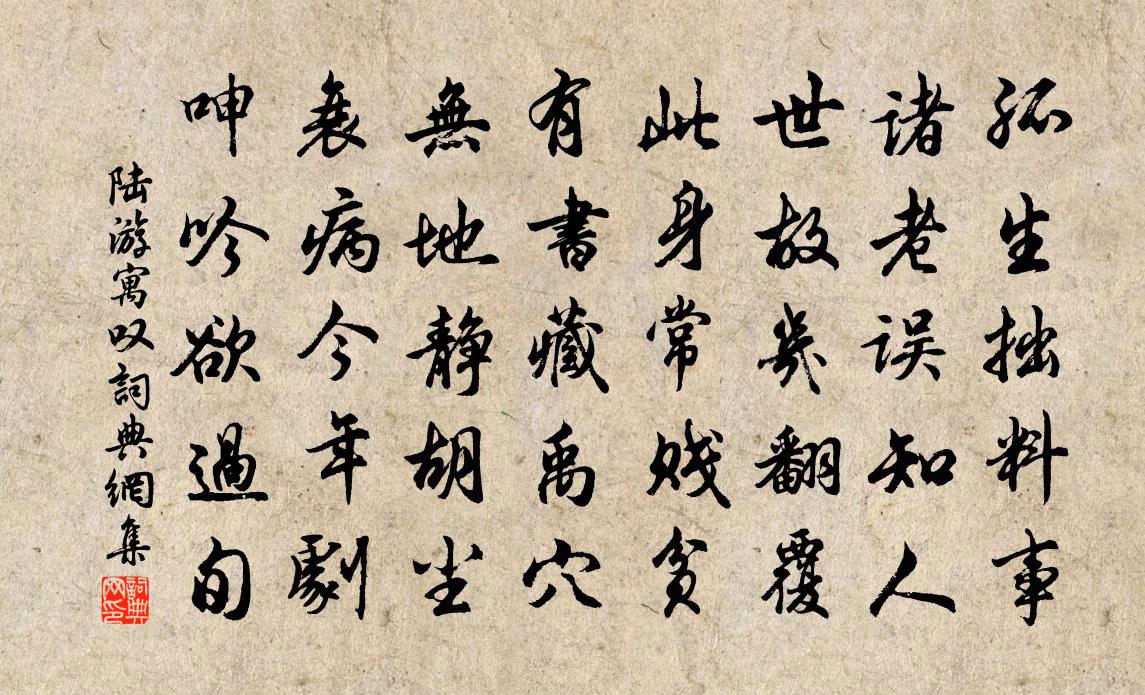 孤生拙料事
诸老误知人
世故几翻覆
此身常贱贫
有書藏禹穴
無地静胡尘
衰病今年劇
呻吟欲過旬
陆游寓叹詞典網集
詞典网印